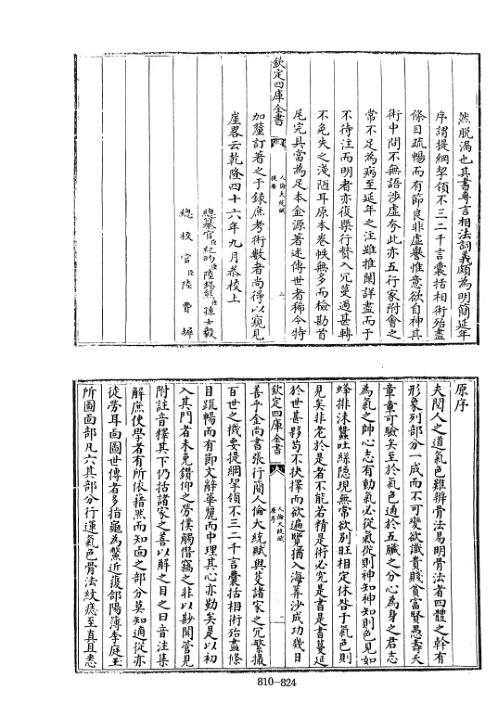 然脫漏也其書專言相法詞義頗為明簡延年
序謂提綱挈領不三二千言囊括相術殆盡
條目疏暢而有節良非虛譽惟意欲自神其
術中間不無語涉虛夸此亦五行家附會之
常不足為病至延年之注雖推闡詳盡而于
不待注而明者亦復槩行贅入冗蔓過甚轉
不免失之淺陋耳原本卷帙無多而檢勘首
尾完具當為足本金源著述傳世者稀今特
欽定四庫全書
人倫大統賦
提要
二
加釐訂著之于錄庶考術數者尚得以窺見
崖畧云乾隆四十六年九月恭校上
總纂官臣紀昀臣陸錫熊臣孫士毅
總校官臣陸費墀
原序
夫閱人之道氣色難辨骨法易明骨法者四體之幹有
形象列部分一成而不可變欲識貴賤貧富賢愚壽夭
章章可驗矣至於氣色通於五臟之分心為身之君志
為氣之帥心志有動氣必從氣從則神知神知則色見如
蜂排沫蠶吐絲隱現無常欲別旺相定休咎于氣色則
見矣非老於是者不能若精是術必究是書是書蔓延
於世甚夥苟不抉擇而欲遍覽猶入海算沙成功幾日
欽定四庫全書
人倫大統賦
原序
一
善乎金尚書張行簡人倫大統賦與芟諸家之冗繁撮
百世之機要提綱挈領不三二千言囊括相術殆盡條
目疏暢而有節文辭華麗而中理其心亦勤矣是以初
入其門者未免鑽仰之勞僕觸僣竊之非以尠聞管見
附註音釋其下仍括諸家之善以解之目之曰音注集
解庶使學者有所依藉然而知面之部分莫知適從亦
徒勞耳面圖世傳者多指龜為鱉近陽薄李庭玉
所圖面部凡六其部分行運氣色骨法紋痣至真且悉
810-824